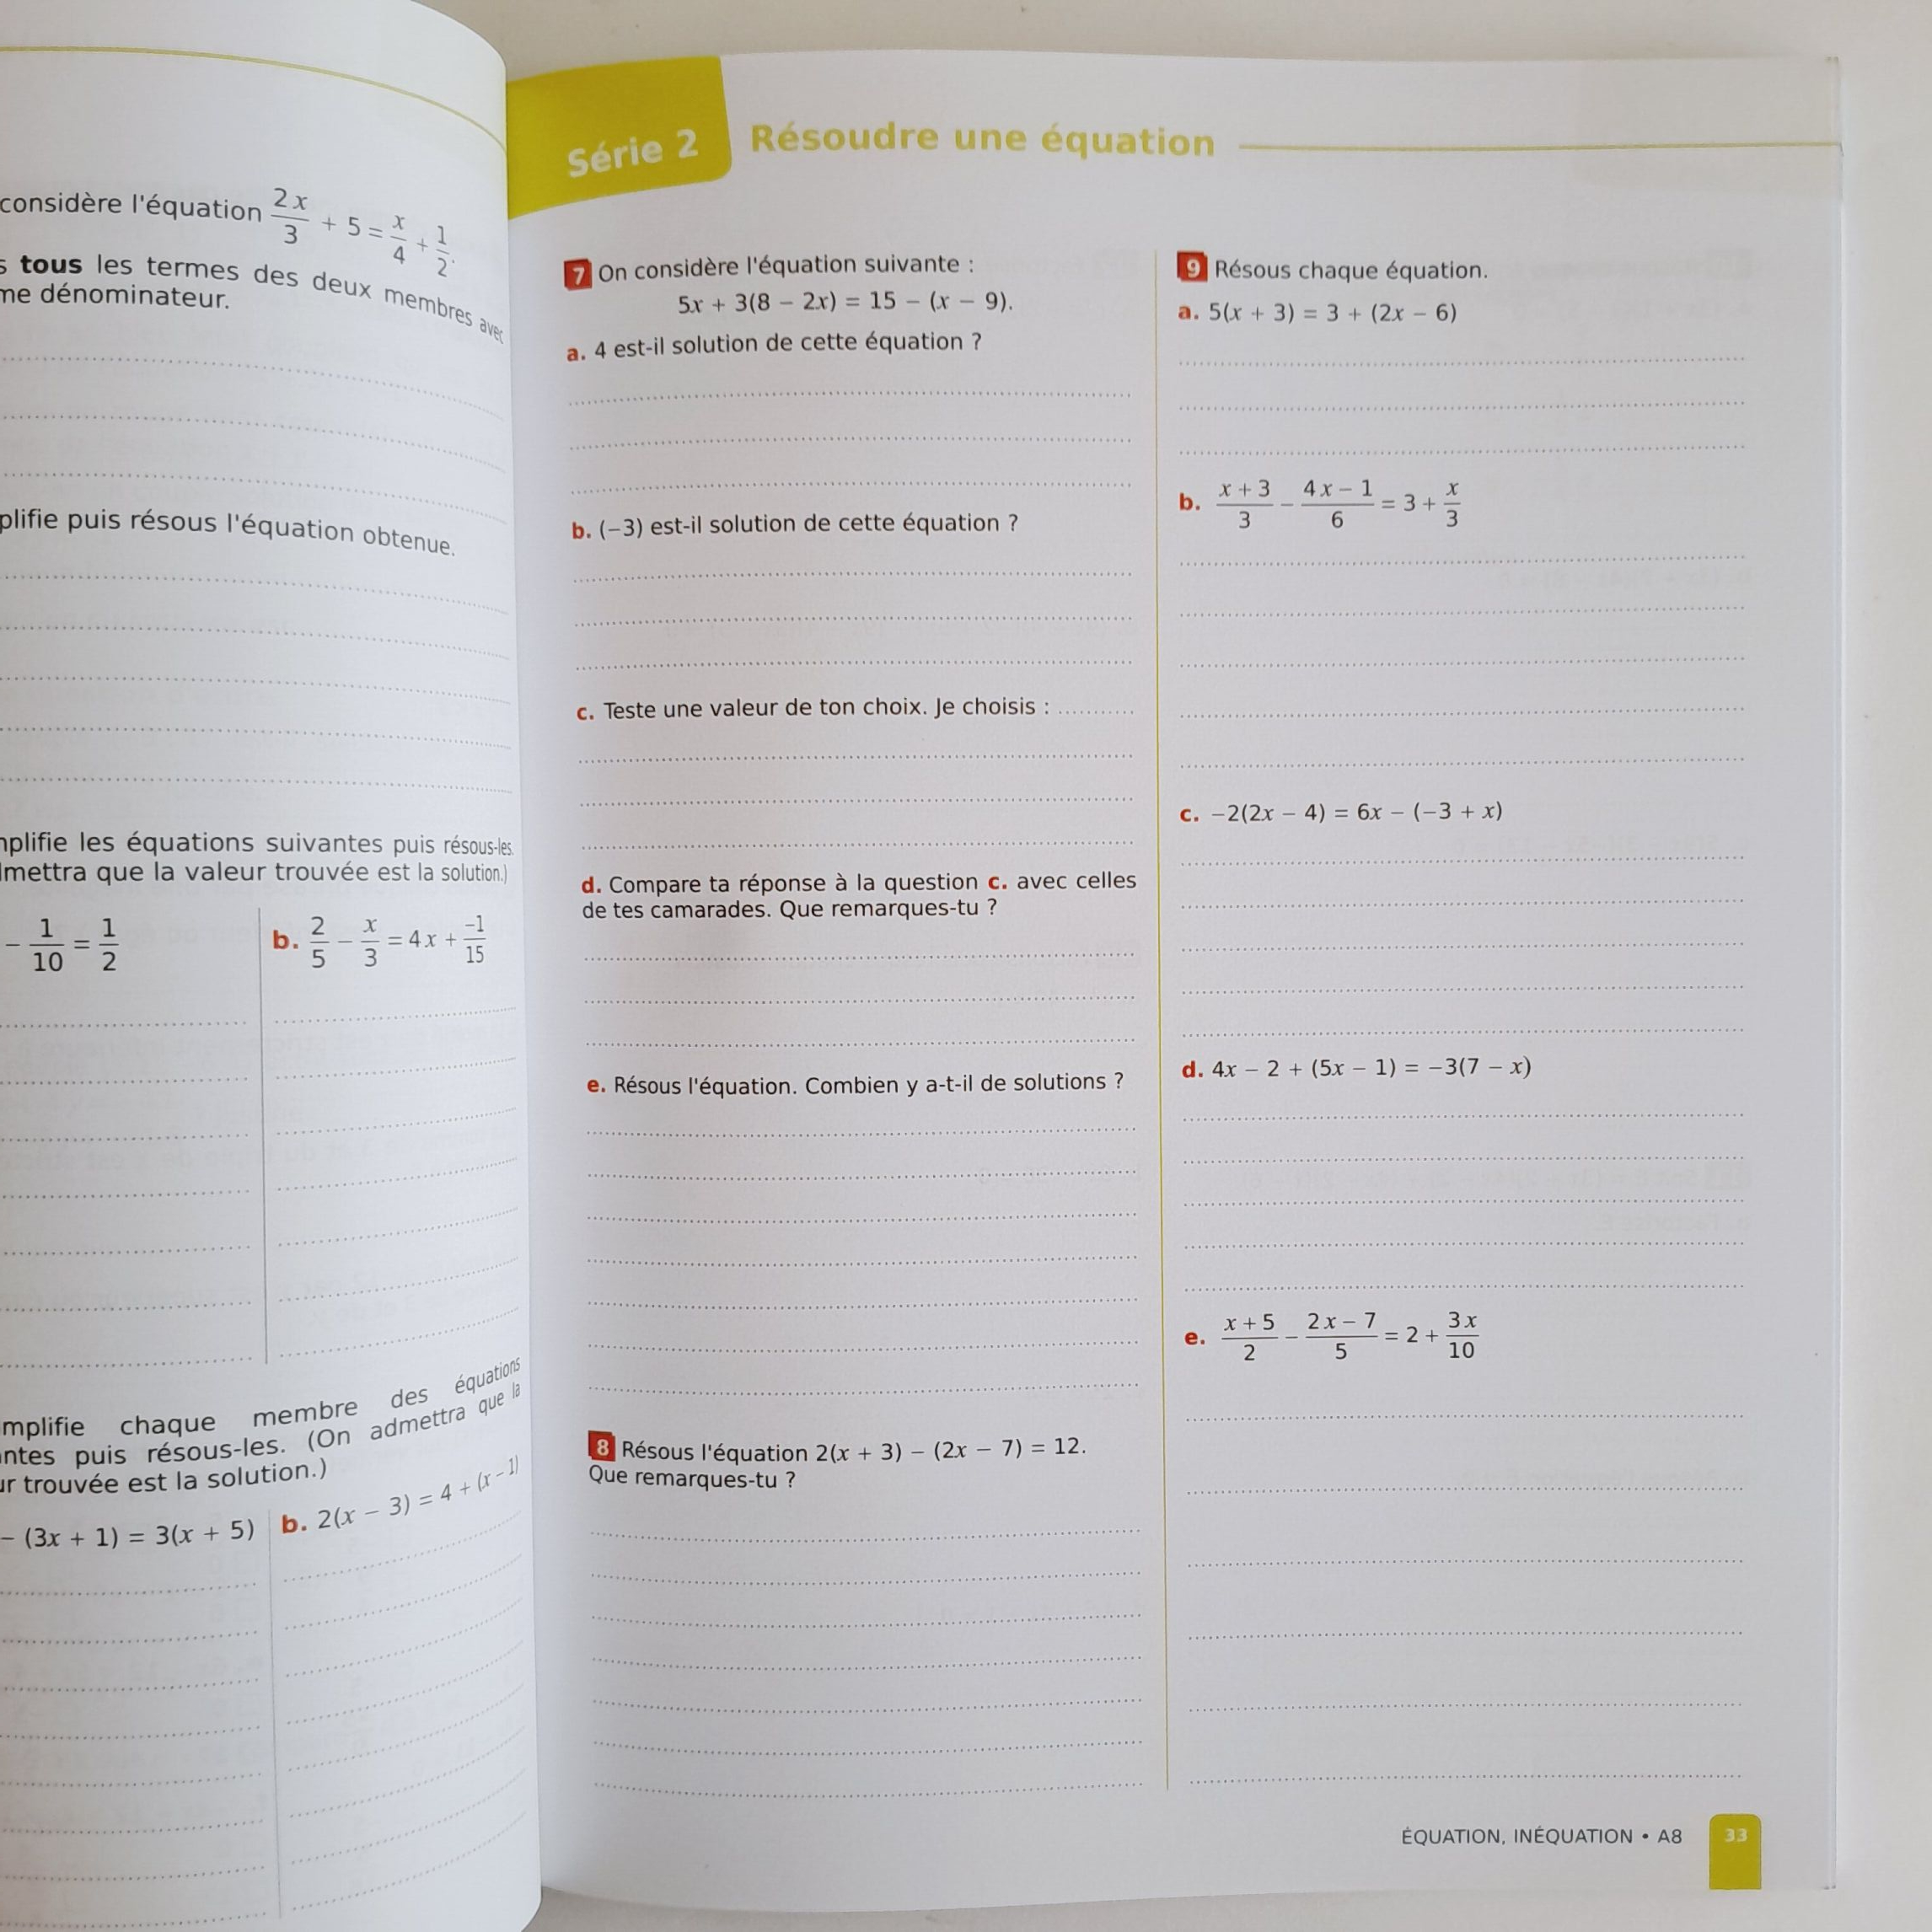 considère l'équation 2x/3 + 5 = x/4 + 1/2.
tous les termes des deux membres avec
dénominateur.
puis résous l'équation obtenue.
les équations suivantes puis résous-les.
que la valeur trouvée est la solution.)
− 1/10 = 1/2
b. 2/5 − x/3 = 4x + −1/15
chaque membre des équations
puis résous-les. (On admettra que la
trouvée est la solution.)
− (3x + 1) = 3(x + 5)
b. 2(x − 3) = 4 + (x − 1)
Série 2
Résoudre une équation
7 On considère l'équation suivante :
5x + 3(8 − 2x) = 15 − (x − 9).
a. 4 est-il solution de cette équation ?
b. (−3) est-il solution de cette équation ?
c. Teste une valeur de ton choix. Je choisis : ..........
d. Compare ta réponse à la question c. avec celles
de tes camarades. Que remarques-tu ?
e. Résous l'équation. Combien y a-t-il de solutions ?
8 Résous l'équation 2(x + 3) − (2x − 7) = 12.
Que remarques-tu ?
9 Résous chaque équation.
a. 5(x + 3) = 3 + (2x − 6)
b. (x + 3)/3 − (4x − 1)/6 = 3 + x/3
c. −2(2x − 4) = 6x − (−3 + x)
d. 4x − 2 + (5x − 1) = −3(7 − x)
e. (x + 5)/2 − (2x − 7)/5 = 2 + 3x/10
ÉQUATION, INÉQUATION • A8
33